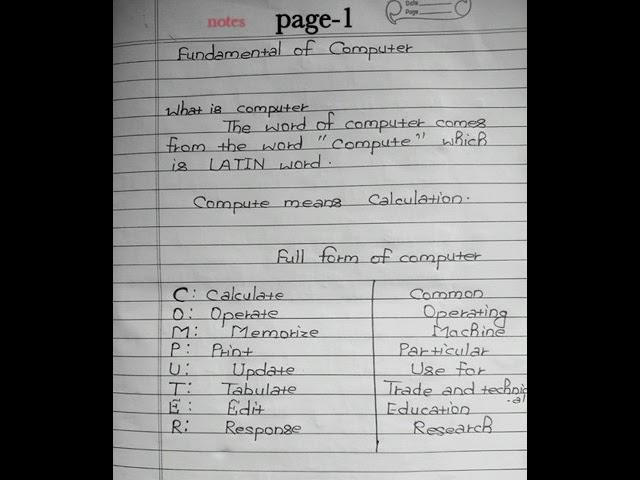 notes page-1
Date
Page
Fundamental of Computer
What is computer
The word of computer comes
from the word "Compute" which
is LATIN word.
Compute means Calculation.
Full form of computer
C: Calculate Common
O: Operate Operating
M: Memorize Machine
P: Print Particular
U: Update Use for
T: Tabulate Trade and technic
-al
E: Edit Education
R: Response Research